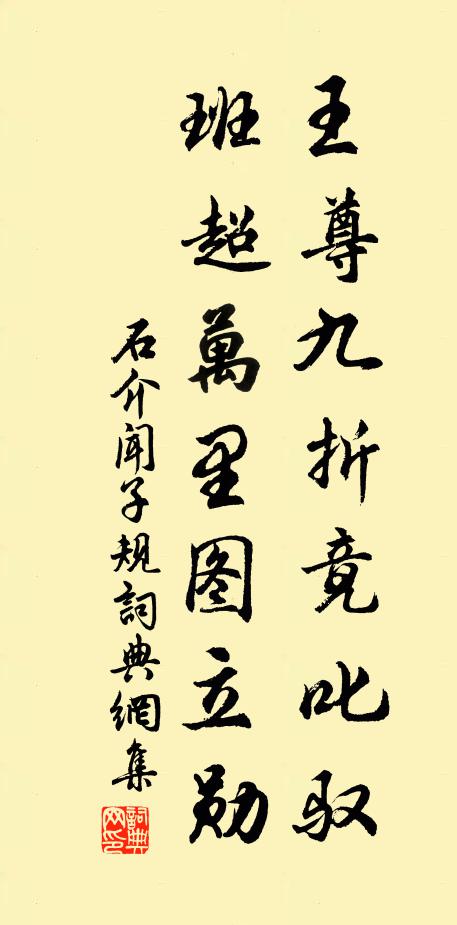 王尊九折竟叱驭
班超萬里图立勋
石介闻子规詞典網集
詞典网印